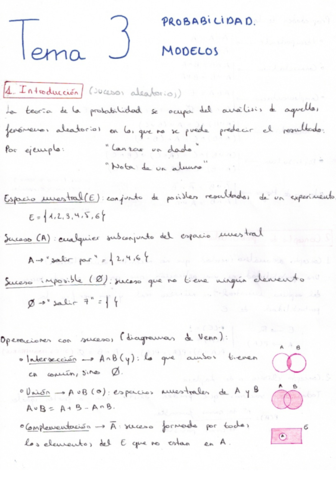 Tema 3 PROBABILIDAD.
MODELOS
1. Introducción (sucesos aleatorios)
La teoría de la probabilidad se ocupa del análisis de aquellos
fenómenos aleatorios en los que no se puede predecir el resultado.
Por ejemplo: "Lanzar un dado"
"Nota de un alumno"
Espacio muestral (E) conjunto de posibles resultados de un experimento
E = {1,2,3,4,5,6}
Suceso (A): cualquier subconjunto del espacio muestral
A → "salir par" = {2,4,6}
Suceso imposible (Ø): suceso que no tiene ningún elemento
Ø → "salir 7" = { }
Operaciones con sucesos (diagramas de Venn):
• Intersección → A∩B (y): lo que ambos tienen
en común, sino Ø.
A B
• Unión → A∪B (o): espacios muestrales de A y B
A∪B = A + B - A∩B.
A B
• Complementación → Ā: suceso formado por todos
los elementos del E que no estan en A.
E
A